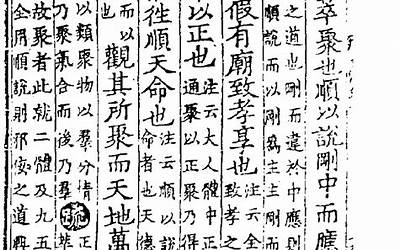 萃聚也順以說剛中而應
之道也剛而違於中應則
順說而以剛爲主主
假有廟致孝享也
注全
致孝之
以正也
注云大人體中正
通聚以正聚乃得
往順天命也
注云順以說
命者也天德
而以
也
觀其所聚而天地萬
以類聚物以羣分情
乃聚氣合而後乃羣
疏
正
萃
故聚者此就二體及九五
全用順說則邪佞之道興